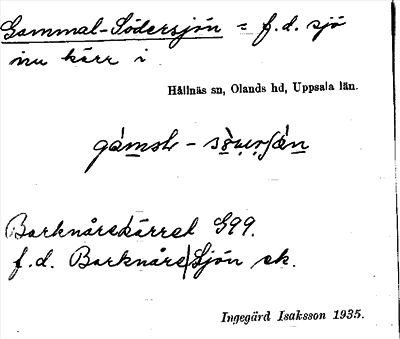 Gammal-Södersjön = f.d. sjö
nu kärr i
Hållnäs sn, Olands hd, Uppsala län.
Barknårekärret G99.
f.d. Barknåre Sjön ek.
Ingegärd Isaksson 1935.